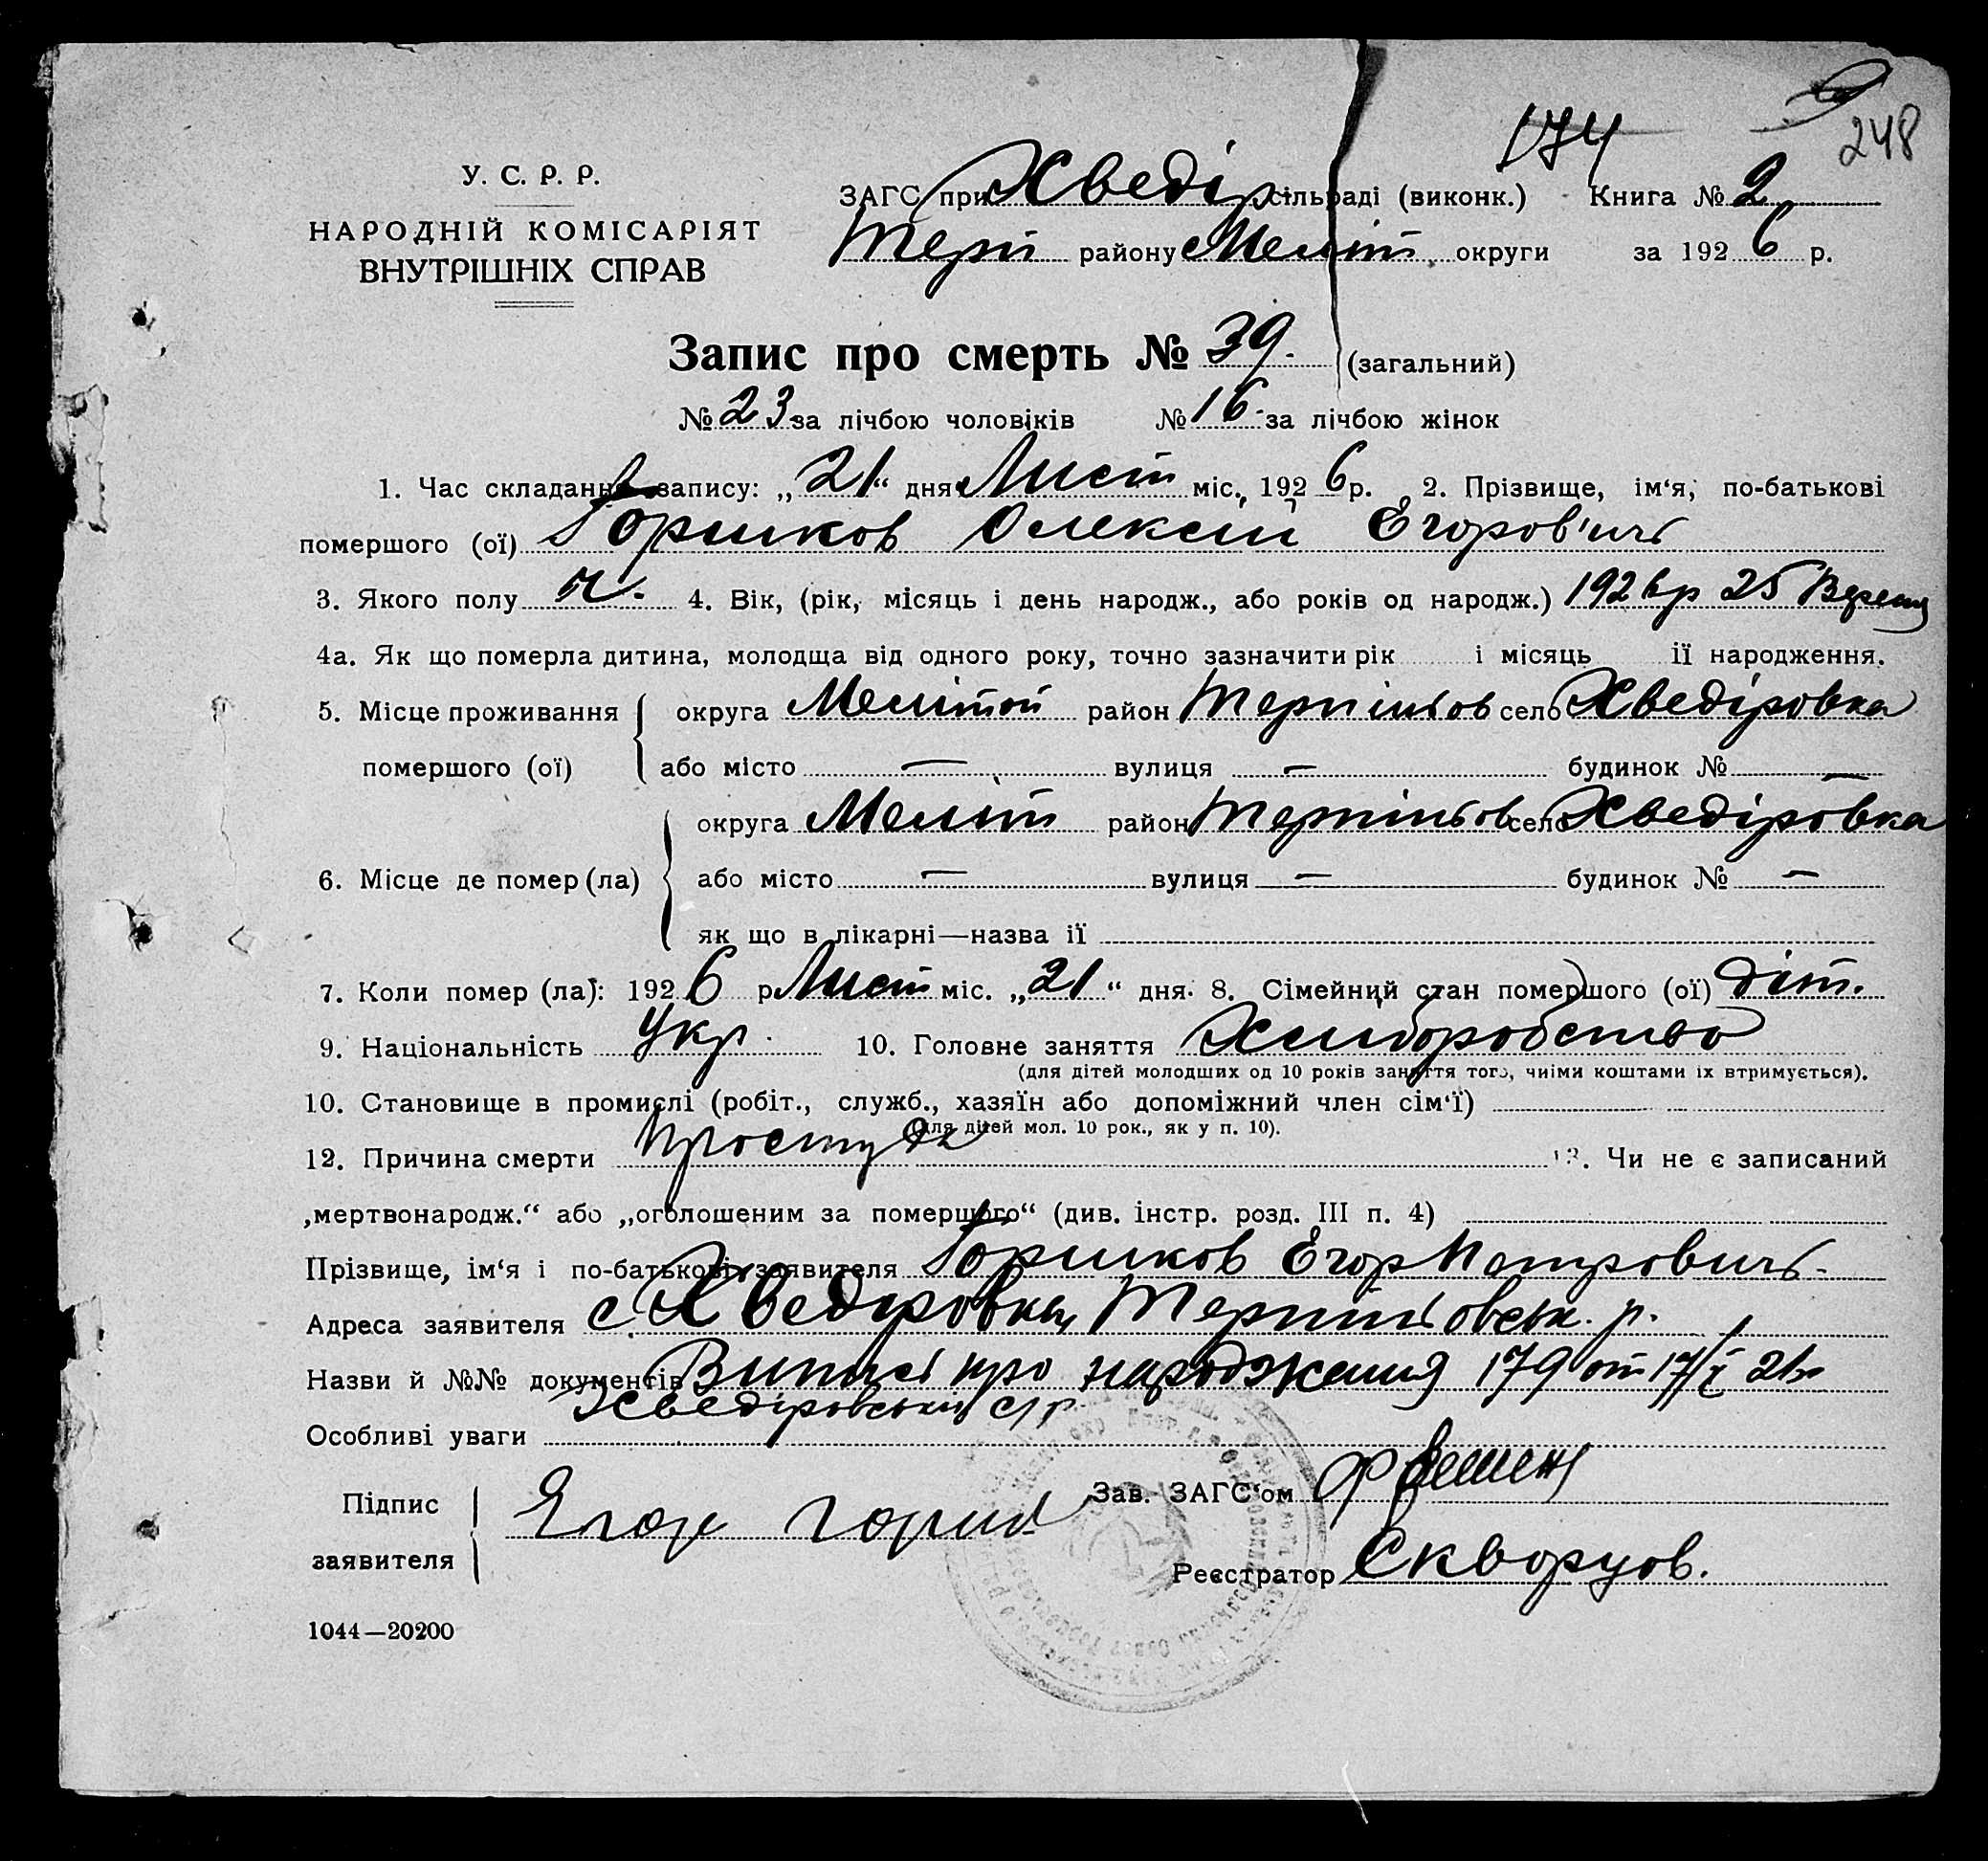 174
248
У. С. Р. Р.
НАРОДНІЙ КОМІСАРІЯТ
ВНУТРІШНІХ СПРАВ
ЗАГС при Хведір сільраді (виконк.) Книга № 2
Терп району Меліт округи за 1926 р.
Запис про смерть № 39. (загальний)
№ 23 за лічбою чоловіків № 16 за лічбою жінок
1. Час складання запису: „21“ дня Лист міс. 1926 р. 2. Прізвище, ім‘я, по-батькові
помершого (ої) Горшков Олексій Єгоров'ич
3. Якого полу ч. 4. Вік, (рік, місяць і день народж., або років од народж.) 1926 р 25 Вересня
4а. Як що померла дитина, молодща від одного року, точно зазначити рік і місяць її народження.
5. Місце проживання помершого (ої) округа Мелітоп район Терпіньов село Хведіровка
або місто — вулиця — будинок № —
6. Місце де помер (ла) округа Меліт район Терпіньов село Хведіровка
або місто — вулиця — будинок № —
як що в лікарні—назва її
7. Коли помер (ла): 1926 р Лист міс. „21“ дня. 8. Сімейний стан помершого (ої) діт.
9. Національність Укр. 10. Головне заняття Хліборобство
(для дітей молодших од 10 років заняття того, чиїми коштами їх втримується).
10. Становище в промислі (робіт., служб., хазяїн або допоміжний член сім‘ї)
(для дітей мол. 10 рок., як у п. 10).
12. Причина смерти простуда 13. Чи не є записаний
„мертвонародж.“ або „оголошеним за померщого“ (див. інстр. розд. III п. 4)
Прізвище, ім‘я і по-батькові заявителя Горшков Єгор Петрович
Адреса заявителя с. Хведіровка, Терпіньовськ. р.
Назви й №№ документів Випись про народження 179 от 17/X 26
Хведіровський с/р
Особливі уваги
Підпис заявителя Егор Горшк
Зав. ЗАГС‘ом
Реєстратор Скворцов.
1044—20200